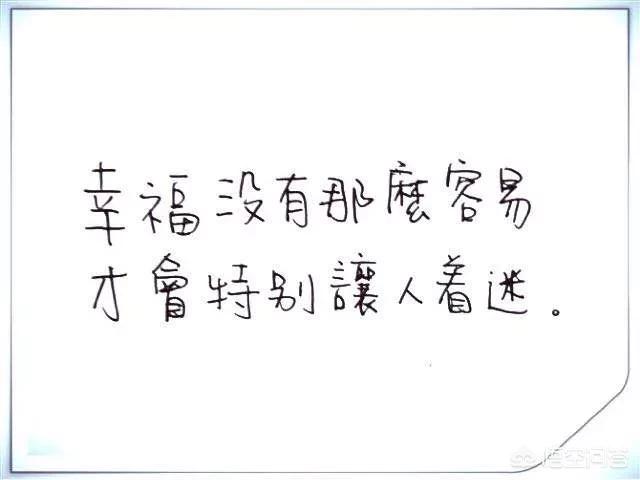 幸福没有那麼容易
才會特别讓人着迷。
悟空问答